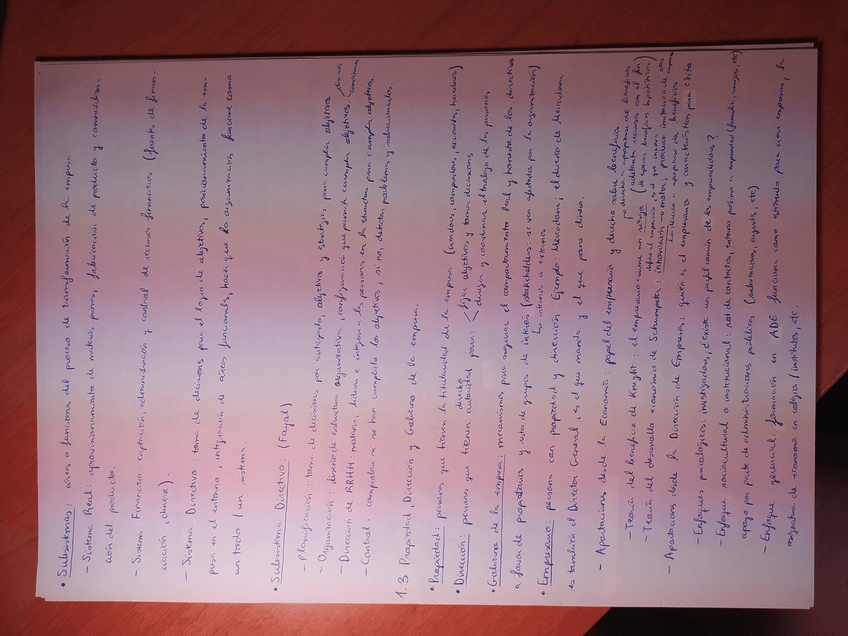 • Subsistemas: áreas o funciones del proceso de transformación de la empresa
- Sistema Real: aprovisionamiento de materias primas, fabricación de productos y comercializa-
ción del producto.
- Sistema Financiero: captación, administración y control de recursos financieros (fuente de finan-
ciación, dinero).
- Sistema Directivo: toma de decisiones para el logro de objetivos, posicionamiento de la em-
presa en el entorno, integración de áreas funcionales, hace que la organización funcione como
un todo / un sistema.
• Subsistema Directivo: (Fayol)
- Planificación: toma de decisiones por anticipado, objetivos y estrategias para cumplir objetivos
- Organización: diseño de estructura organizativa (configuración que permite cumplir objetivos,
- Dirección de RRHH: motivar, liderar e integrar a las personas en la estructura para cumplir objetivos,
- Control: comprobar si se han cumplido los objetivos, si no, detectar problemas y solucionarlos.
1.3 Propiedad, Dirección y Gobierno de la empresa.
• Propiedad: personas que tienen la titularidad de la empresa (acciones, compradores, herederos)
• Dirección: personas que tienen autoridad para: fijar objetivos y tomar decisiones
derecho
dirigir y coordinar el trabajo de las personas
• Gobierno de la empresa: mecanismos para asegurar el comportamiento leal y honesto de los directivos
a favor de propietarios y resto de grupos de interés (stakeholders: se ven afectados por la organización)
↳ internos o externos
• Empresario: persona con propiedad y dirección Ejemplo: Mercadona, el dueño de Mercadona
es también el Director General es el que manda y el que pone dinero.
- Aportaciones desde la Economía: papel del empresario y derecho sobre beneficios
- Teoría del beneficio de Knight: el empresario asume un riesgo (adelanta recursos con el fin
de generar beneficios hipotéticos)
- Teoría del desarrollo económico de Schumpeter: innovación → motor, produce imitación de otros
- Aportaciones desde la Dirección de Empresas: quién es el empresario y características para éxito
- Enfoques psicológicos: investigadores, ¿existe un perfil común de los emprendedores?
- Enfoque sociocultural o institucional: red de contactos, entorno próximo a empresarios (familia, amigos, etc)
apoyo por parte de administraciones públicas (subvenciones, ayuda, etc)
- Enfoque gerencial: formación en ADE funciona como estímulo para crear empresas, la
asignatura de economía en colegios/institutos, etc.